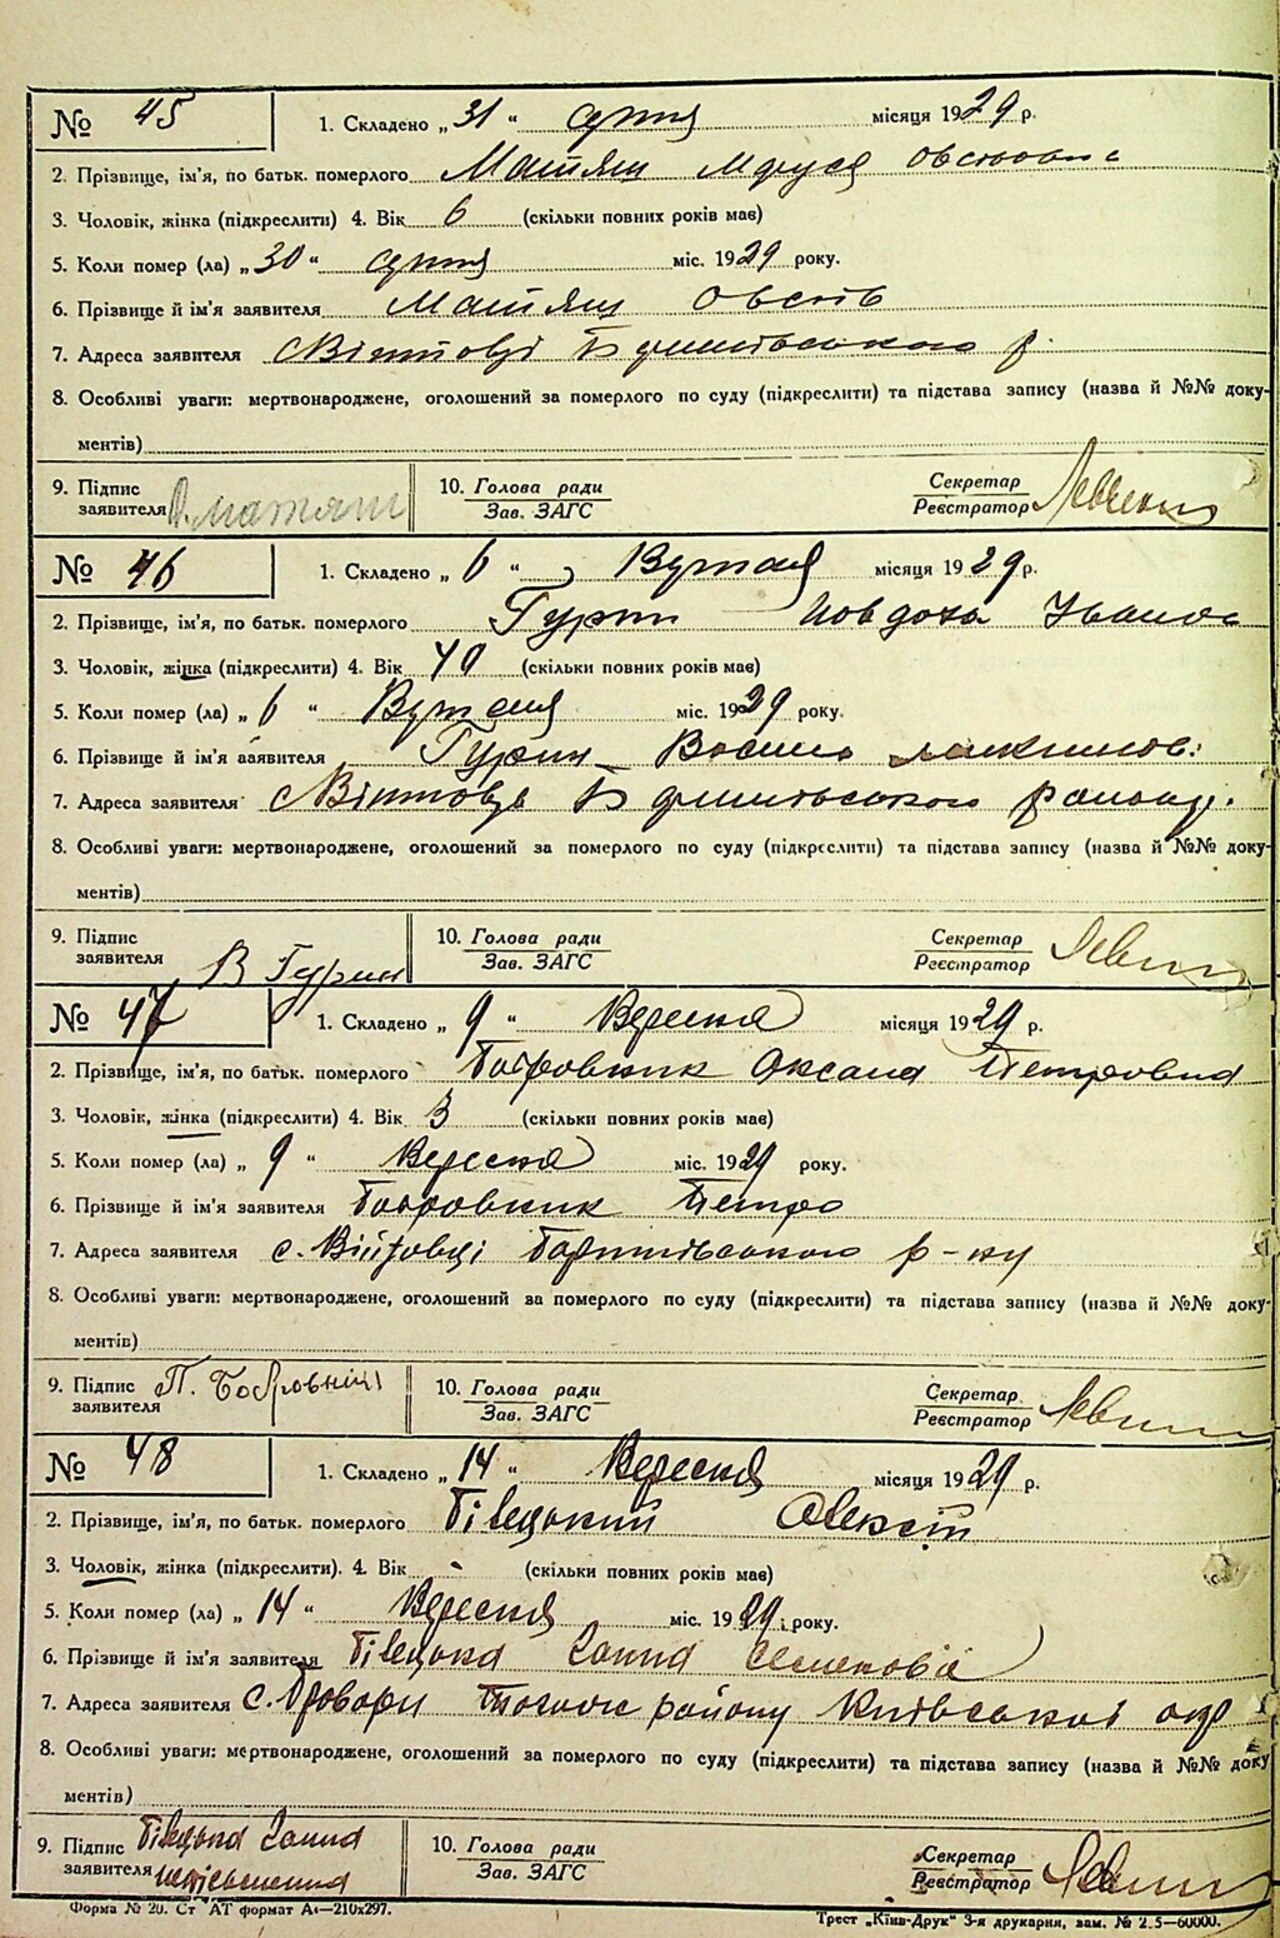 № 45 1. Складено „31“ серпня місяця 1929 р.
2. Прізвище, ім'я, по батьк. померлого Матяш Маруся
3. Чоловік, жінка (підкреслити) 4. Вік 6 (скільки повних років має)
5. Коли помер (ла) „30“ серпня міс. 1929 року.
6. Прізвище й ім'я заявителя Матяш Овсій
7. Адреса заявителя с. Війтовці р.
8. Особливі уваги: мертвонароджене, оголошений за померлого по суду (підкреслити) та підстава запису (назва й №№ доку-
ментів)
9. Підпис 10. Голова ради Секретар
заявителя О. Матяш Зав. ЗАГС Реєстратор
№ 46 1. Складено „6“ місяця 1929 р.
2. Прізвище, ім'я, по батьк. померлого Гурин Мовдоха Іванов
3. Чоловік, жінка (підкреслити) 4. Вік 40 (скільки повних років має)
5. Коли помер (ла) „6“ міс. 1929 року.
6. Прізвище й ім'я заявителя Гурин Василь
7. Адреса заявителя с. Війтовці району.
8. Особливі уваги: мертвонароджене, оголошений за померлого по суду (підкреслити) та підстава запису (назва й №№ доку-
ментів)
9. Підпис 10. Голова ради Секретар
заявителя В Гурин Зав. ЗАГС Реєстратор
№ 47 1. Складено „9“ Вересня місяця 1929 р.
2. Прізвище, ім'я, по батьк. померлого Бобровник Оксана Петровна
3. Чоловік, жінка (підкреслити) 4. Вік 3 (скільки повних років має)
5. Коли помер (ла) „9“ Вересня міс. 1929 року.
6. Прізвище й ім'я заявителя Бобровник Петро
7. Адреса заявителя с. Війтовці р-ну
8. Особливі уваги: мертвонароджене, оголошений за померлого по суду (підкреслити) та підстава запису (назва й №№ доку-
ментів)
9. Підпис П. Бобровнік 10. Голова ради Секретар
заявителя Зав. ЗАГС Реєстратор
№ 48 1. Складено „14“ Вересня місяця 1929 р.
2. Прізвище, ім'я, по батьк. померлого Білецький Олексій
3. Чоловік, жінка (підкреслити). 4. Вік - (скільки повних років має)
5. Коли помер (ла) „14“ Вересня міс. 1929 року.
6. Прізвище й ім'я заявителя Білецька Ганна
7. Адреса заявителя с. Бровари району Київської окр
8. Особливі уваги: мертвонароджене, оголошений за померлого по суду (підкреслити) та підстава запису (назва й №№ доку
ментів)
9. Підпис Білецька Ганна 10. Голова ради Секретар
заявителя неписьменна Зав. ЗАГС Реєстратор
Форма № 20. Ст АТ формат А4—210x297.
Трест „Київ-Друк“ 3-я друкарня, зам. № 2.5—60000.